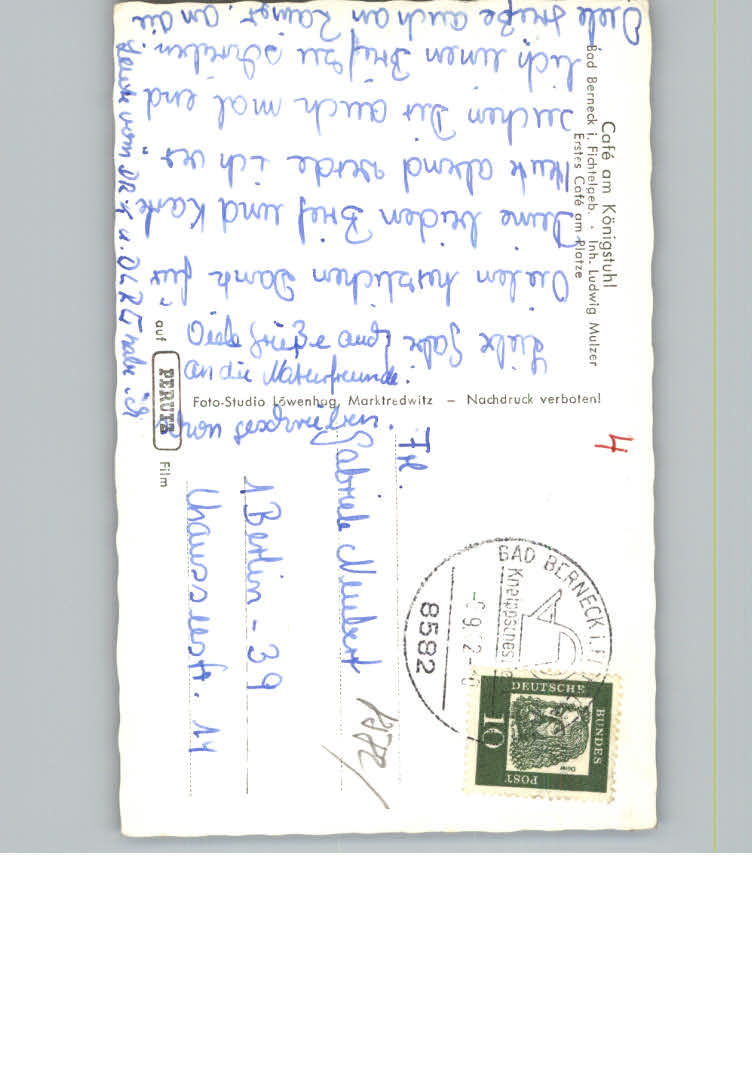 Café am Königstuhl
Bad Berneck i. Fichtelgeb. · Inh. Ludwig Mulzer
Erstes Café am Platze
Liebe Gabi
Vielen herzlichen Dank für
Deine beiden Brief und Karte
Heute abend werde ich ver"
suchen Dir auch mal end
lich einen Brief zu schreiben.
Viele Grüße auch an Rainer, an die
Leute vom DRK u. DLRG habe ich
schon vergessen.
Viele Grüße auch
an die Naturfreunde.
Foto-Studio Löwenhag, Marktredwitz – Nachdruck verboten!
auf PERUTZ Film
4
Frl.
Gabriele Neubert
1 Berlin - 39
Chausseestr. 14
8582
BAD BERNECK i. F
Kneippsches
DEUTSCHE
BUNDES
POST
10
Dürer